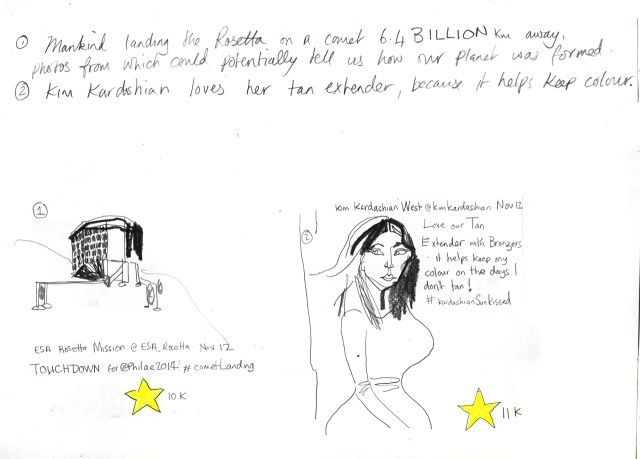 ① Mankind landing the Rosetta on a comet 6.4 BILLION km away,
photos from which could potentially tell us how our planet was formed.
② Kim Kardashian loves her tan extender, because it helps keep colour.
①
ESA Rosetta Mission @ESA_Rosetta Nov 12
TOUCHDOWN for @Philae2014! #cometLanding
10 K
Kim Kardashian West @kimkardashian Nov 12
②
Love our Tan
Extender with Bronzers
... it helps keep my
colour on the days I
don't tan!
#kardashianSunkissed
11 K